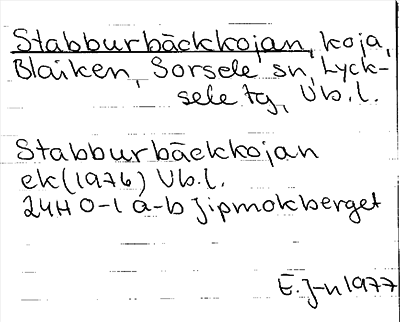 Stabburbäckkojan, koja,
Blaiken, Sorsele sn, Lyck-
sele tg, Vb.l.
Stabburbäckkojan
ek (1976) Vb.l.
24H 0-1 a-b Jipmokberget
E. J-n 1977